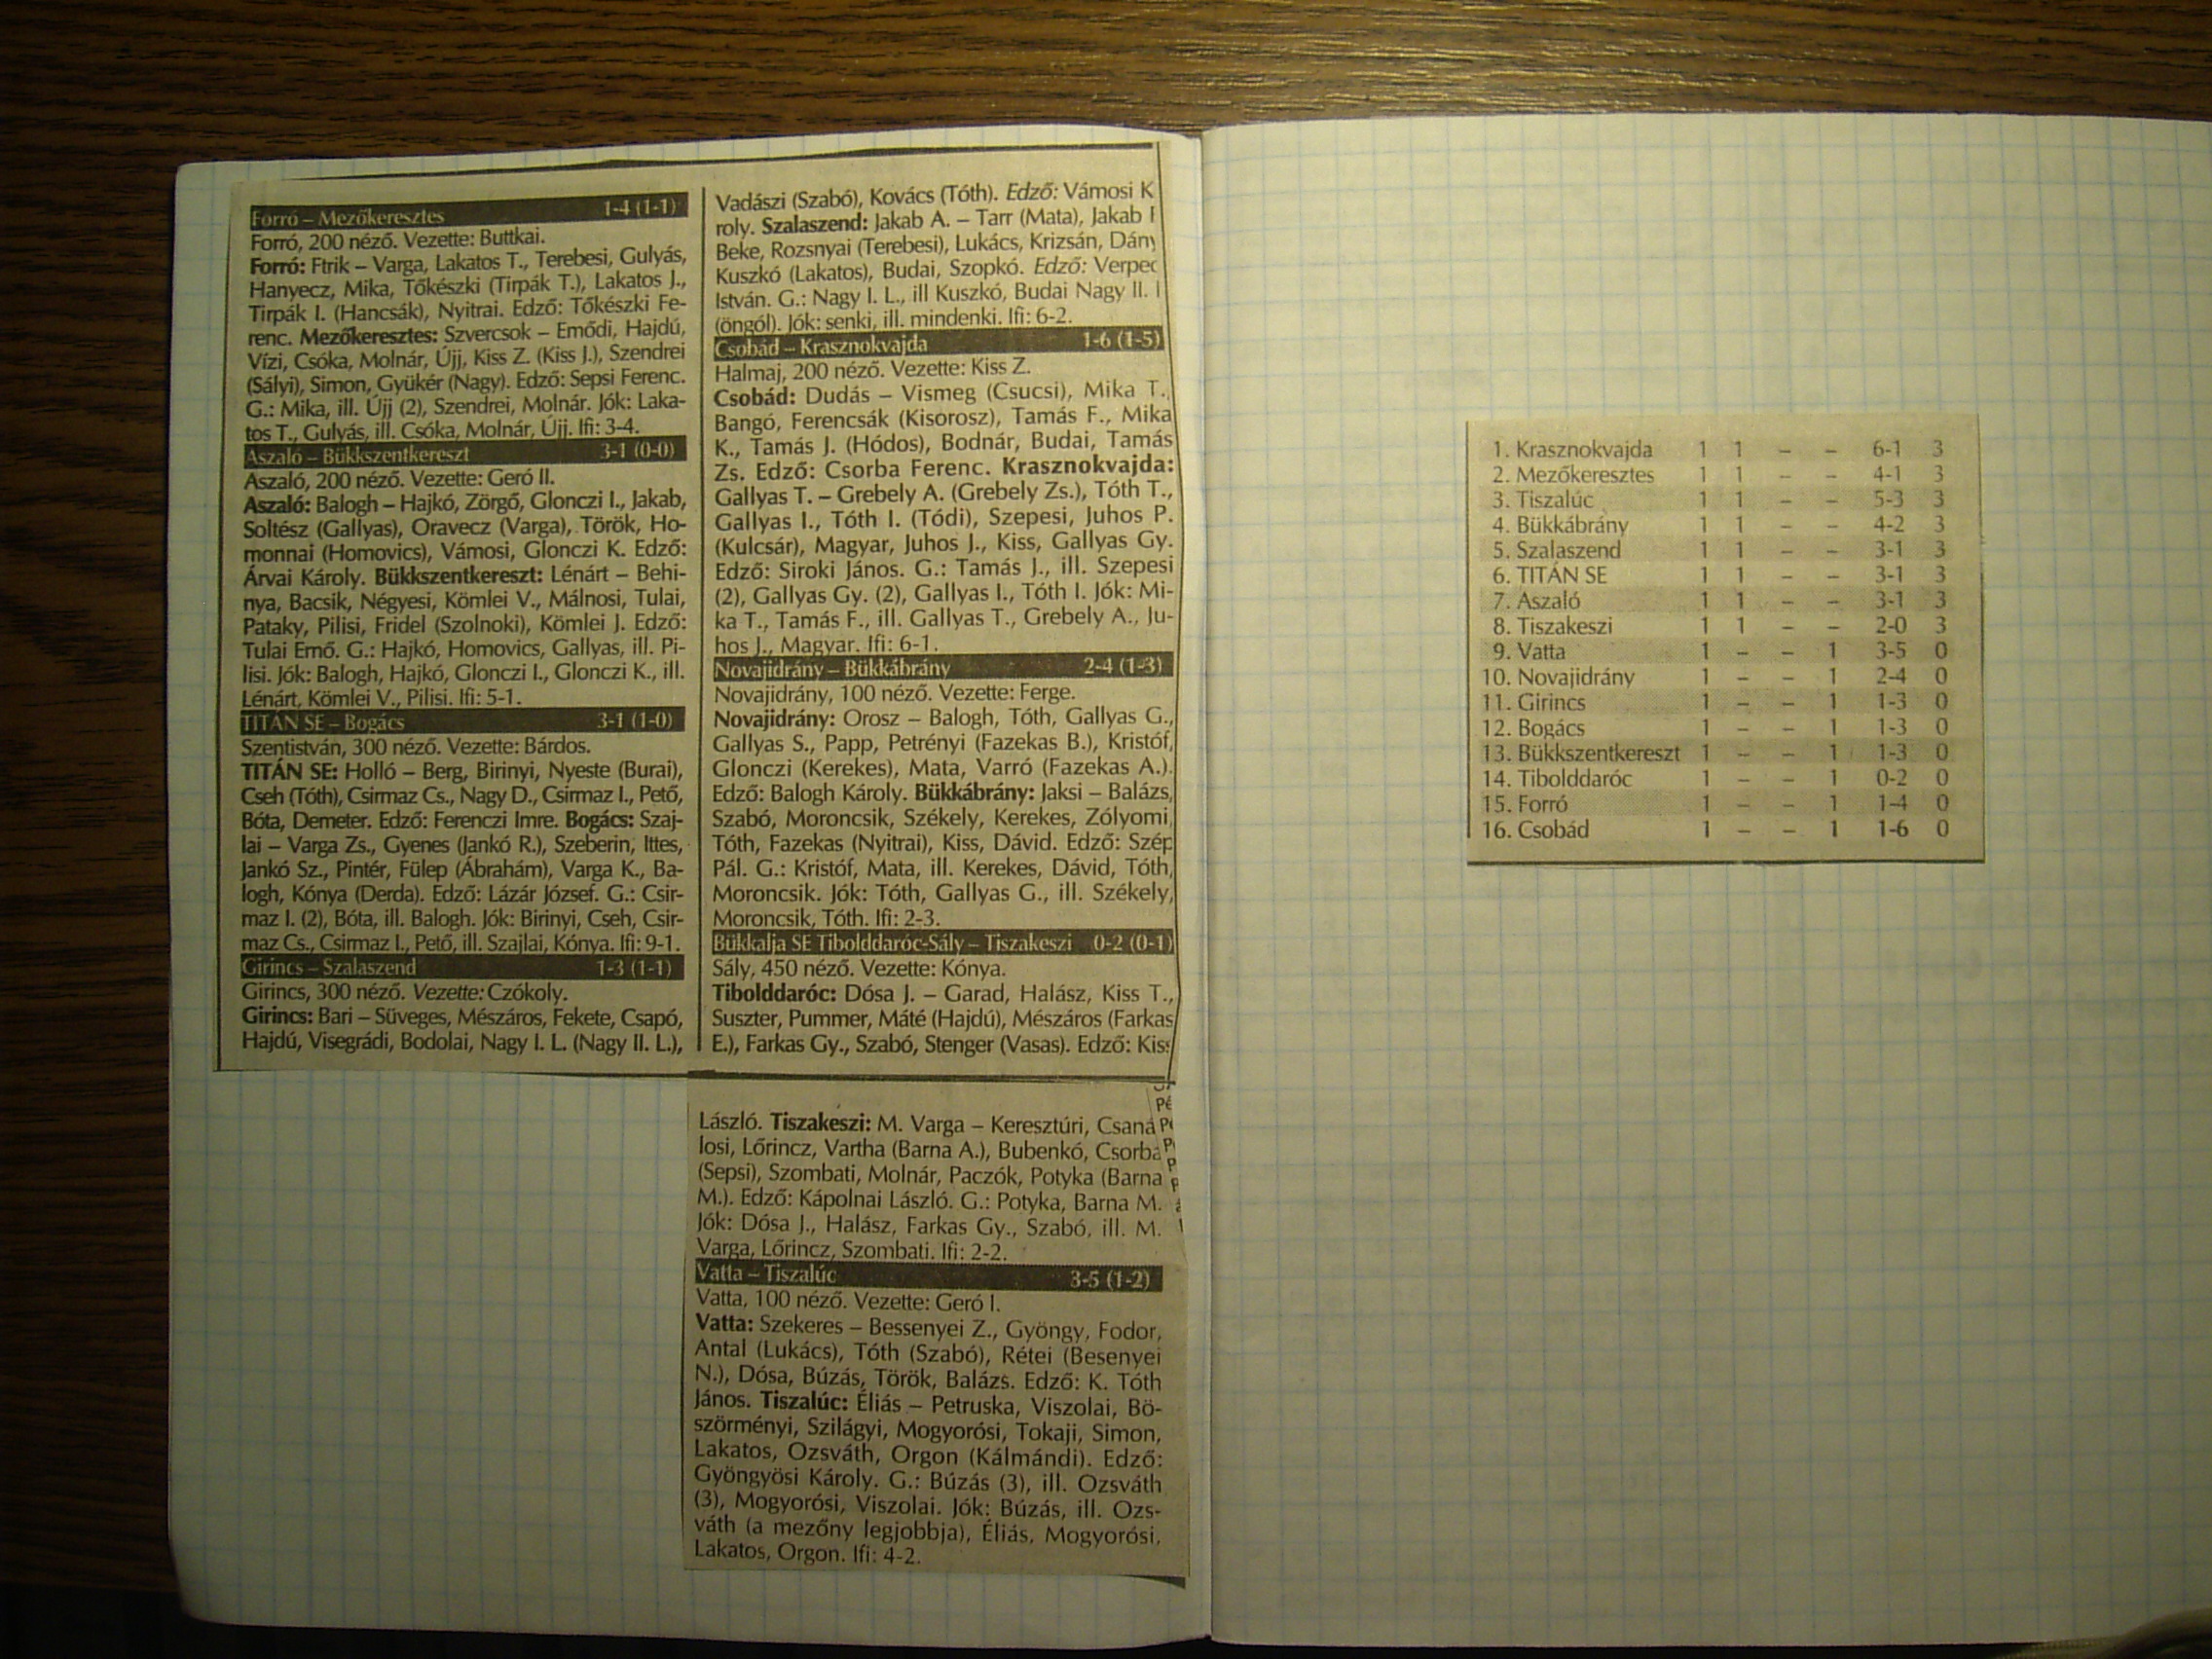 Forró – Mezőkeresztes 1-4 (1-1)
Forró, 200 néző. Vezette: Buttkai.
Forró: Ftrik – Varga, Lakatos T., Terebesi, Gulyás,
Hanyecz, Mika, Tőkészki (Tirpák T.), Lakatos J.,
Tirpák I. (Hancsák), Nyitrai. Edző: Tőkészki Fe-
renc. Mezőkeresztes: Szvercsok – Emődi, Hajdú,
Vízi, Csóka, Molnár, Újj, Kiss Z. (Kiss J.), Szendrei
(Sályi), Simon, Gyükér (Nagy). Edző: Sepsi Ferenc.
G.: Mika, ill. Újj (2), Szendrei, Molnár. Jók: Laka-
tos T., Gulyás, ill. Csóka, Molnár, Újj. Ifi: 3-4.
Aszaló – Bükkszentkereszt 3-1 (0-0)
Aszaló, 200 néző. Vezette: Geró II.
Aszaló: Balogh – Hajkó, Zörgő, Glonczi I., Jakab,
Soltész (Gallyas), Oravecz (Varga), Török, Ho-
monnai (Homovics), Vámosi, Glonczi K. Edző:
Árvai Károly. Bükkszentkereszt: Lénárt – Behi-
nya, Bacsik, Négyesi, Kömlei V., Málnosi, Tulai,
Pataky, Pilisi, Fridel (Szolnoki), Kömlei J. Edző:
Tulai Ernő. G.: Hajkó, Homovics, Gallyas, ill. Pi-
lisi. Jók: Balogh, Hajkó, Glonczi I., Glonczi K., ill.
Lénárt, Kömlei V., Pilisi. Ifi: 5-1.
TITÁN SE – Bogács 3-1 (1-0)
Szentistván, 300 néző. Vezette: Bárdos.
TITÁN SE: Holló – Berg, Birinyi, Nyeste (Burai),
Cseh (Tóth), Csirmaz Cs., Nagy D., Csirmaz I., Pető,
Bóta, Demeter. Edző: Ferenczi Imre. Bogács: Szaj-
lai – Varga Zs., Gyenes (Jankó R.), Szeberin, Ittes,
Jankó Sz., Pintér, Fülep (Ábrahám), Varga K., Ba-
logh, Kónya (Derda). Edző: Lázár József. G.: Csir-
maz I. (2), Bóta, ill. Balogh. Jók: Birinyi, Cseh, Csir-
maz Cs., Csirmaz I., Pető, ill. Szajlai, Kónya. Ifi: 9-1.
Girincs – Szalaszend 1-3 (1-1)
Girincs, 300 néző. Vezette: Czókoly.
Girincs: Bari – Süveges, Mészáros, Fekete, Csapó,
Hajdú, Visegrádi, Bodolai, Nagy I. L. (Nagy II. L.),
Vadászi (Szabó), Kovács (Tóth). Edző: Vámosi K
roly. Szalaszend: Jakab A. – Tarr (Mata), Jakab
Beke, Rozsnyai (Terebesi), Lukács, Krizsán, Dány
Kuszkó (Lakatos), Budai, Szopkó. Edző: Verpec
István. G.: Nagy I. L., ill Kuszkó, Budai Nagy II. l
(öngól). Jók: senki, ill. mindenki. Ifi: 6-2.
Csobád – Krasznokvajda 1-6 (1-5)
Halmaj, 200 néző. Vezette: Kiss Z.
Csobád: Dudás – Vismeg (Csucsi), Mika T.,
Bangó, Ferencsák (Kisorosz), Tamás F., Mika
K., Tamás J. (Hódos), Bodnár, Budai, Tamás
Zs. Edző: Csorba Ferenc. Krasznokvajda:
Gallyas T. – Grebely A. (Grebely Zs.), Tóth T.,
Gallyas I., Tóth I. (Tódi), Szepesi, Juhos P.
(Kulcsár), Magyar, Juhos J., Kiss, Gallyas Gy.
Edző: Siroki János. G.: Tamás J., ill. Szepesi
(2), Gallyas Gy. (2), Gallyas I., Tóth I. Jók: Mi-
ka T., Tamás F., ill. Gallyas T., Grebely A., Ju-
hos J., Magyar. Ifi: 6-1.
Novajidrány – Bükkábrány 2-4 (1-3)
Novajidrány, 100 néző. Vezette: Ferge.
Novajidrány: Orosz – Balogh, Tóth, Gallyas G.,
Gallyas S., Papp, Petrényi (Fazekas B.), Kristóf,
Glonczi (Kerekes), Mata, Varró (Fazekas A.).
Edző: Balogh Károly. Bükkábrány: Jaksi – Balázs,
Szabó, Moroncsik, Székely, Kerekes, Zólyomi,
Tóth, Fazekas (Nyitrai), Kiss, Dávid. Edző: Szép
Pál. G.: Kristóf, Mata, ill. Kerekes, Dávid, Tóth,
Moroncsik. Jók: Tóth, Gallyas G., ill. Székely,
Moroncsik, Tóth. Ifi: 2-3.
Bükkalja SE Tibolddaróc-Sály – Tiszakeszi 0-2 (0-1)
Sály, 450 néző. Vezette: Kónya.
Tibolddaróc: Dósa J. – Garad, Halász, Kiss T.,
Suszter, Pummer, Máté (Hajdú), Mészáros (Farkas
E.), Farkas Gy., Szabó, Stenger (Vasas). Edző: Kiss
László. Tiszakeszi: M. Varga – Keresztúri, Csaná
losi, Lőrincz, Vartha (Barna A.), Bubenkó, Csorba
(Sepsi), Szombati, Molnár, Paczók, Potyka (Barna
M.). Edző: Kápolnai László. G.: Potyka, Barna M.
Jók: Dósa J., Halász, Farkas Gy., Szabó, ill. M.
Varga, Lőrincz, Szombati. Ifi: 2-2.
Vatta – Tiszalúc 3-5 (1-2)
Vatta, 100 néző. Vezette: Geró I.
Vatta: Szekeres – Bessenyei Z., Gyöngy, Fodor,
Antal (Lukács), Tóth (Szabó), Rétei (Besenyei
N.), Dósa, Búzás, Török, Balázs. Edző: K. Tóth
János. Tiszalúc: Éliás – Petruska, Viszolai, Bö-
szörményi, Szilágyi, Mogyorósi, Tokaji, Simon,
Lakatos, Ozsváth, Orgon (Kálmándi). Edző:
Gyöngyösi Károly. G.: Búzás (3), ill. Ozsváth
(3), Mogyorósi, Viszolai. Jók: Búzás, ill. Ozs-
váth (a mezőny legjobbja), Éliás, Mogyorósi,
Lakatos, Orgon. Ifi: 4-2.
1. Krasznokvajda 1 1 – – 6-1 3
2. Mezőkeresztes 1 1 – – 4-1 3
3. Tiszalúc 1 1 – – 5-3 3
4. Bükkábrány 1 1 – – 4-2 3
5. Szalaszend 1 1 – – 3-1 3
6. TITÁN SE 1 1 – – 3-1 3
7. Aszaló 1 1 – – 3-1 3
8. Tiszakeszi 1 1 – – 2-0 3
9. Vatta 1 – – 1 3-5 0
10. Novajidrány 1 – – 1 2-4 0
11. Girincs 1 – – 1 1-3 0
12. Bogács 1 – – 1 1-3 0
13. Bükkszentkereszt 1 – – 1 1-3 0
14. Tibolddaróc 1 – – 1 0-2 0
15. Forró 1 – – 1 1-4 0
16. Csobád 1 – – 1 1-6 0